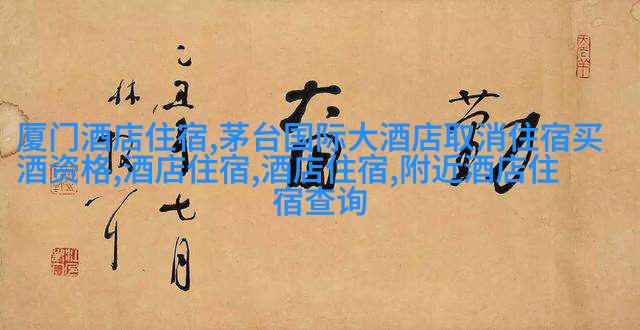 厦门酒店住宿,茅台国际大酒店取消住宿买
酒资格,酒店住宿,酒店住宿,附近酒店住
宿查询
乙丑年七月